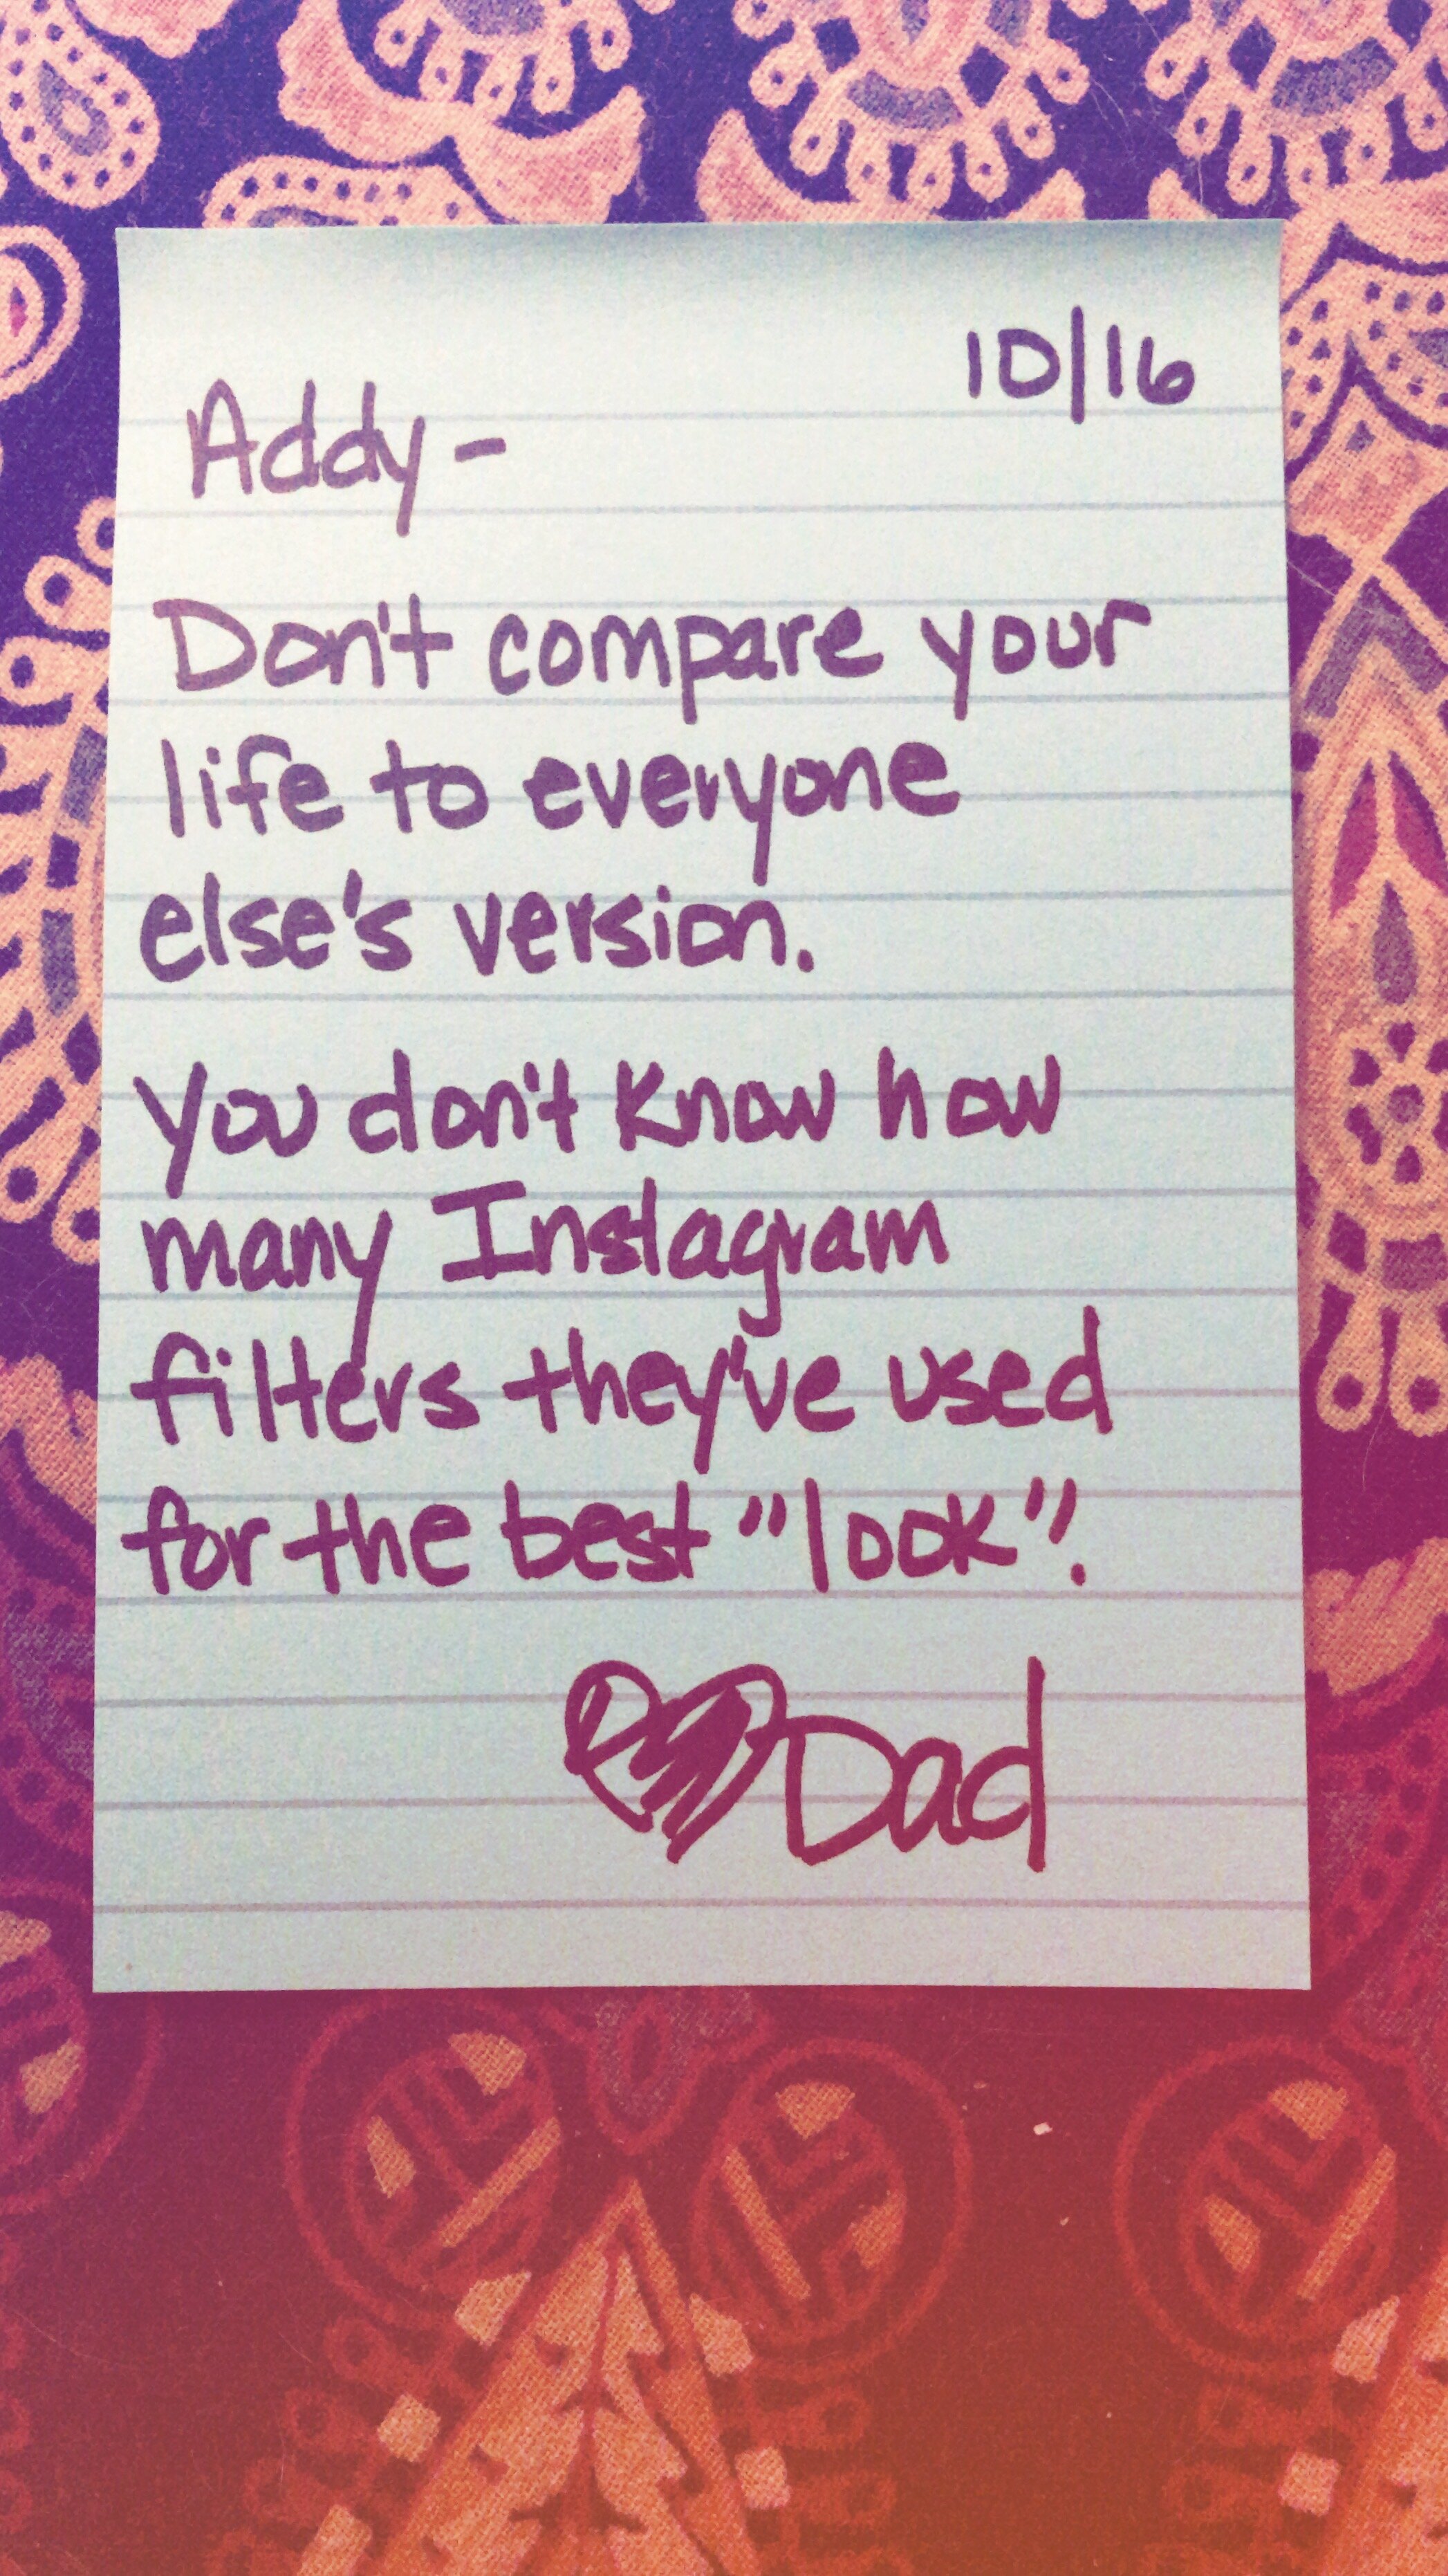 10/16
Addy -
Don't compare your
life to everyone
else's version.
You don't know how
many Instagram
filters they've used
for the best "look".
Dad